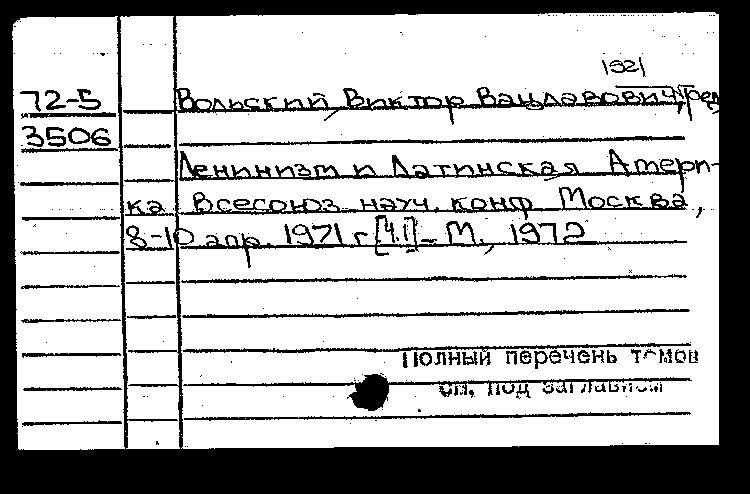 1921
72-5 Вольский, Виктор Вацлавович, ред
3506
Ленинизм и Латинская Амери-
ка Всесоюз. науч. конф. Москва,
8-10 апр. 1971 г. [Ч.I] - М., 1972
Полный перечень томов
см. под заглавием